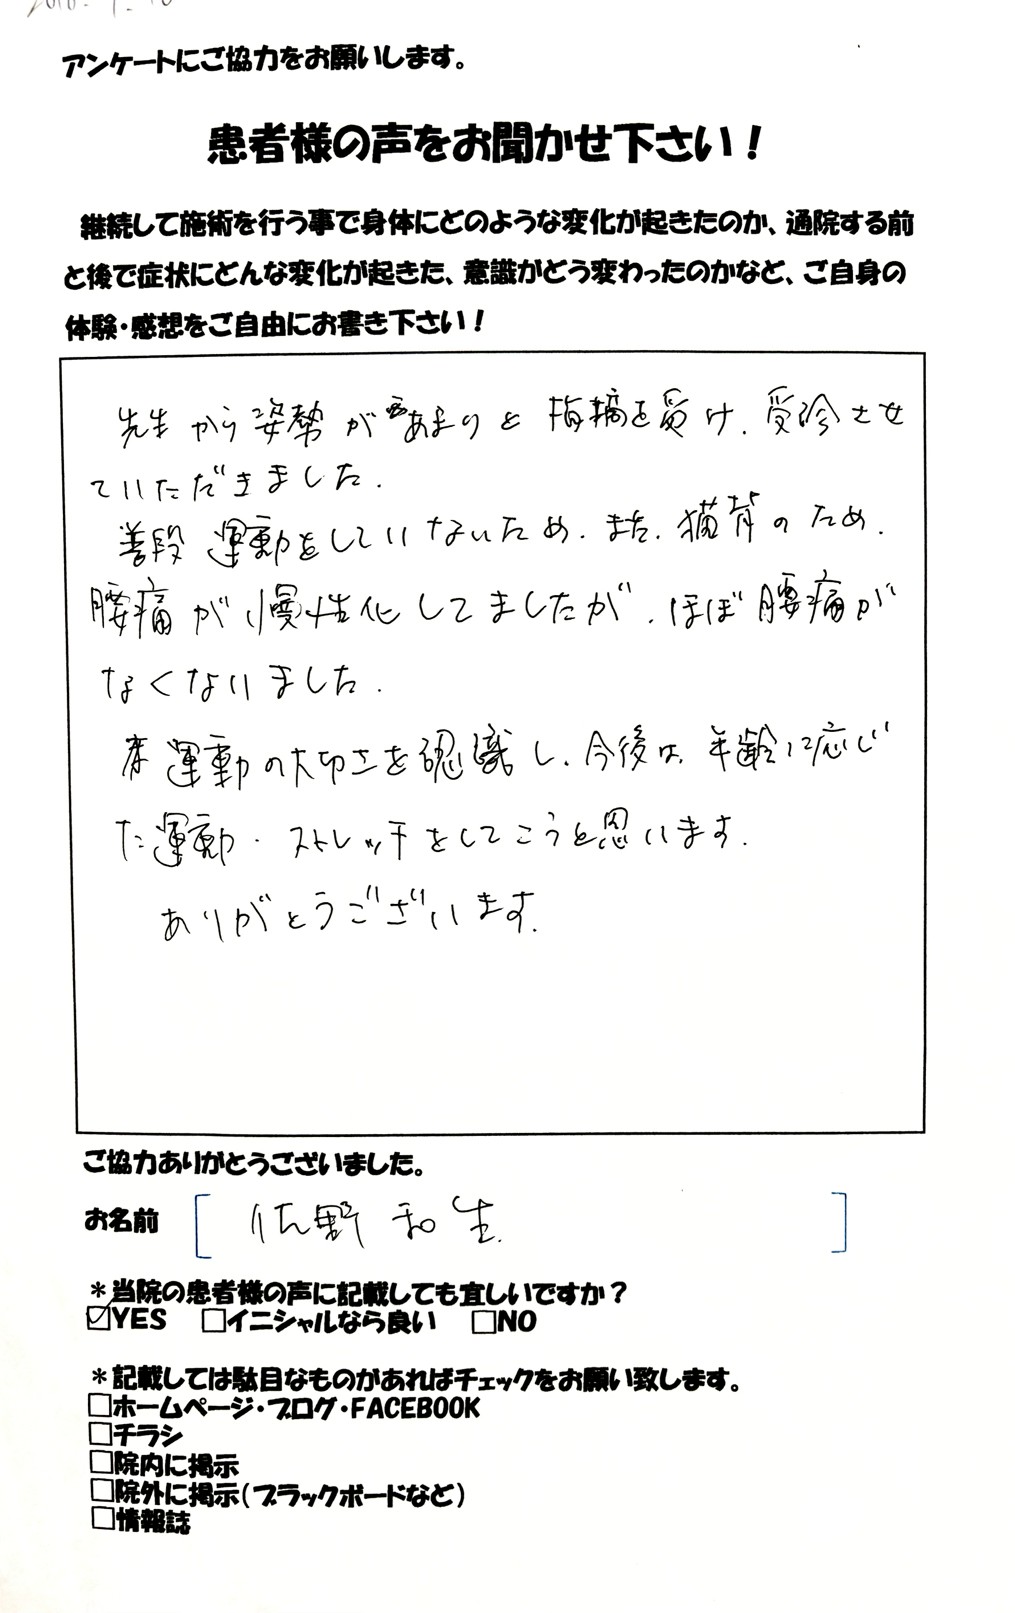 アンケートにご協力をお願いします。
患者様の声をお聞かせ下さい！
継続して施術を行う事で身体にどのような変化が起きたのか、通院する前
と後で症状にどんな変化が起きた、意識がどう変わったのかなど、ご自身の
体験・感想をご自由にお書き下さい！
先生から姿勢が あまりと 指摘を受け、受診させ
ていただきました。
普段 運動をしていないため、また、猫背のため、
腰痛が慢性化してましたが、ほぼ腰痛が
なくなりました。
運動の大切さを認識し、今後は、年齢に応じ
た運動・ストレッチをしてこうと思います。
ありがとうございます。
ご協力ありがとうございました。
お名前 佐野 和生
＊当院の患者様の声に記載しても宜しいですか？
☑YES □イニシャルなら良い □NO
＊記載しては駄目なものがあればチェックをお願い致します。
□ホームページ・ブログ・FACEBOOK
□チラシ
□院内に掲示
□院外に掲示（ブラックボードなど）
□情報誌